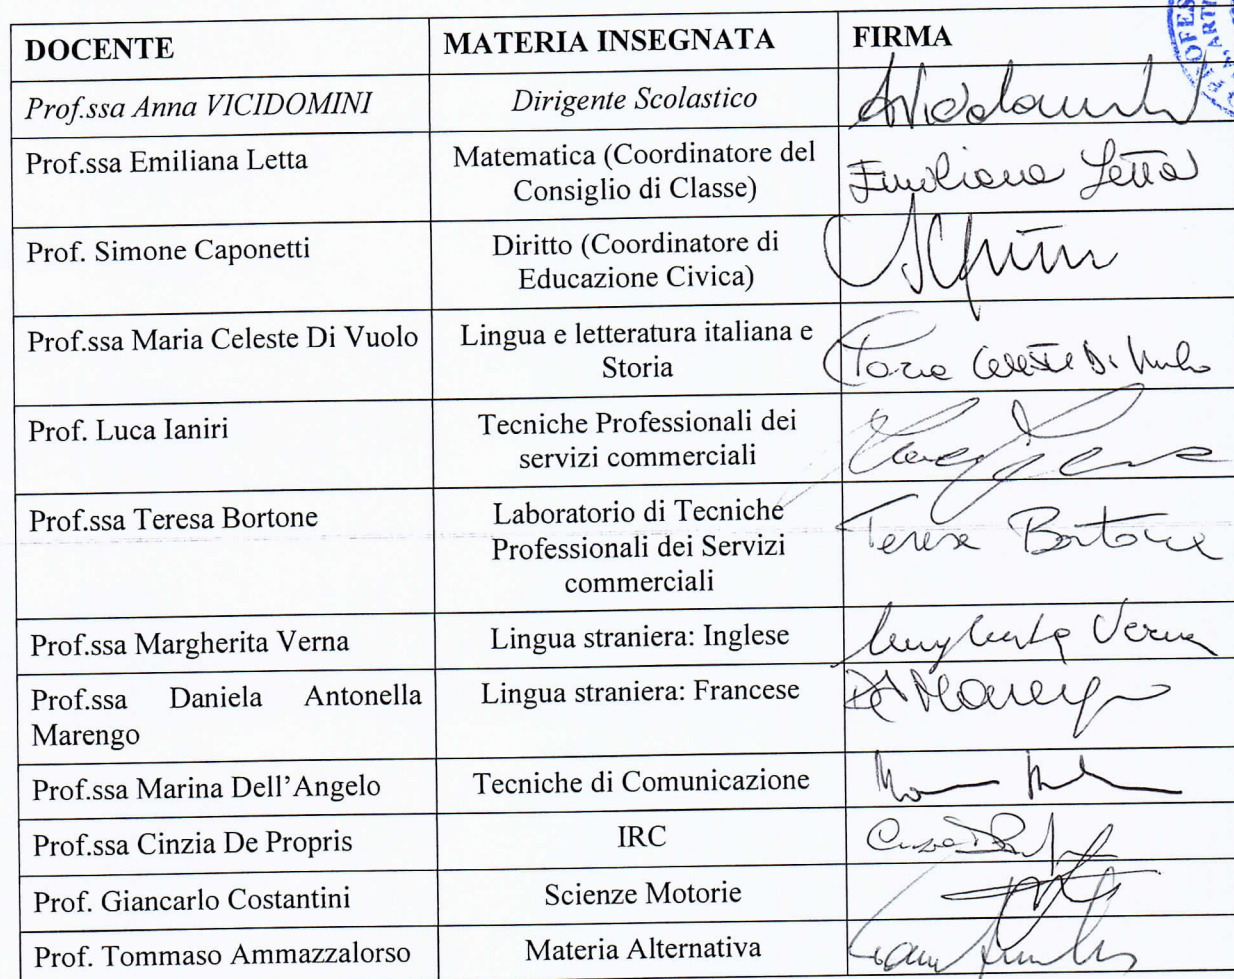 DOCENTE MATERIA INSEGNATA FIRMA
Prof.ssa Anna VICIDOMINI Dirigente Scolastico
Prof.ssa Emiliana Letta Matematica (Coordinatore del Emiliana Letta
Consiglio di Classe)
Prof. Simone Caponetti Diritto (Coordinatore di
Educazione Civica)
Prof.ssa Maria Celeste Di Vuolo Lingua e letteratura italiana e Maria Celeste Di Vuolo
Storia
Prof. Luca Ianiri Tecniche Professionali dei
servizi commerciali
Prof.ssa Teresa Bortone Laboratorio di Tecniche Teresa Bortone
Professionali dei Servizi
commerciali
Prof.ssa Margherita Verna Lingua straniera: Inglese Margherita Verna
Prof.ssa Daniela Antonella Lingua straniera: Francese DAMarengo
Marengo
Prof.ssa Marina Dell'Angelo Tecniche di Comunicazione
Prof.ssa Cinzia De Propris IRC
Prof. Giancarlo Costantini Scienze Motorie
Prof. Tommaso Ammazzalorso Materia Alternativa